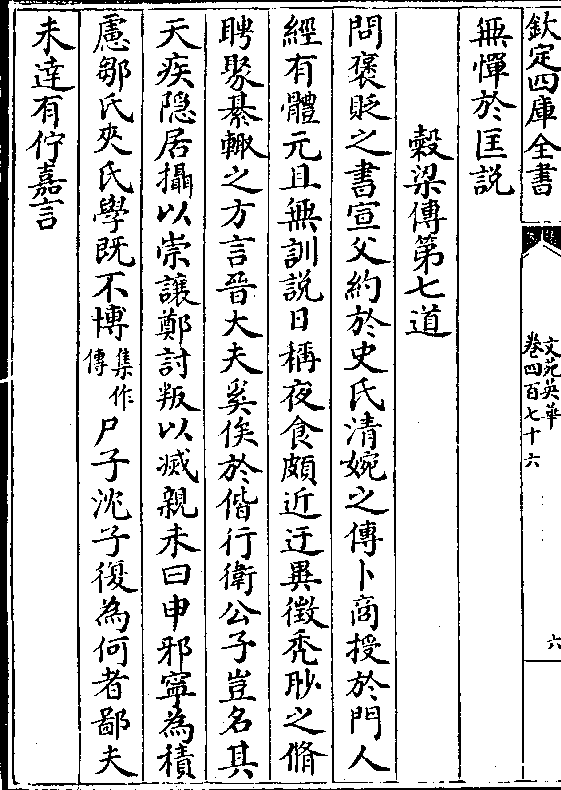 欽定四庫全書
文苑英華
卷四百七十六
六
無憚於匡説
穀梁傳第七道
問褒貶之書宣父約於史氏清婉之傳卜商授於門人
經有體元且無訓説日稱夜食頗近迂異徴秃眇之脩
聘聚綦輙之方言晉大夫奚俟於偕行衛公子豈名其
天疾隐居攝以崇讓鄭討叛以滅親未曰申邪寧為積
慮鄒氏夾氏學既不博集作傳尸子沈子復為何者鄙夫
未達有佇嘉言